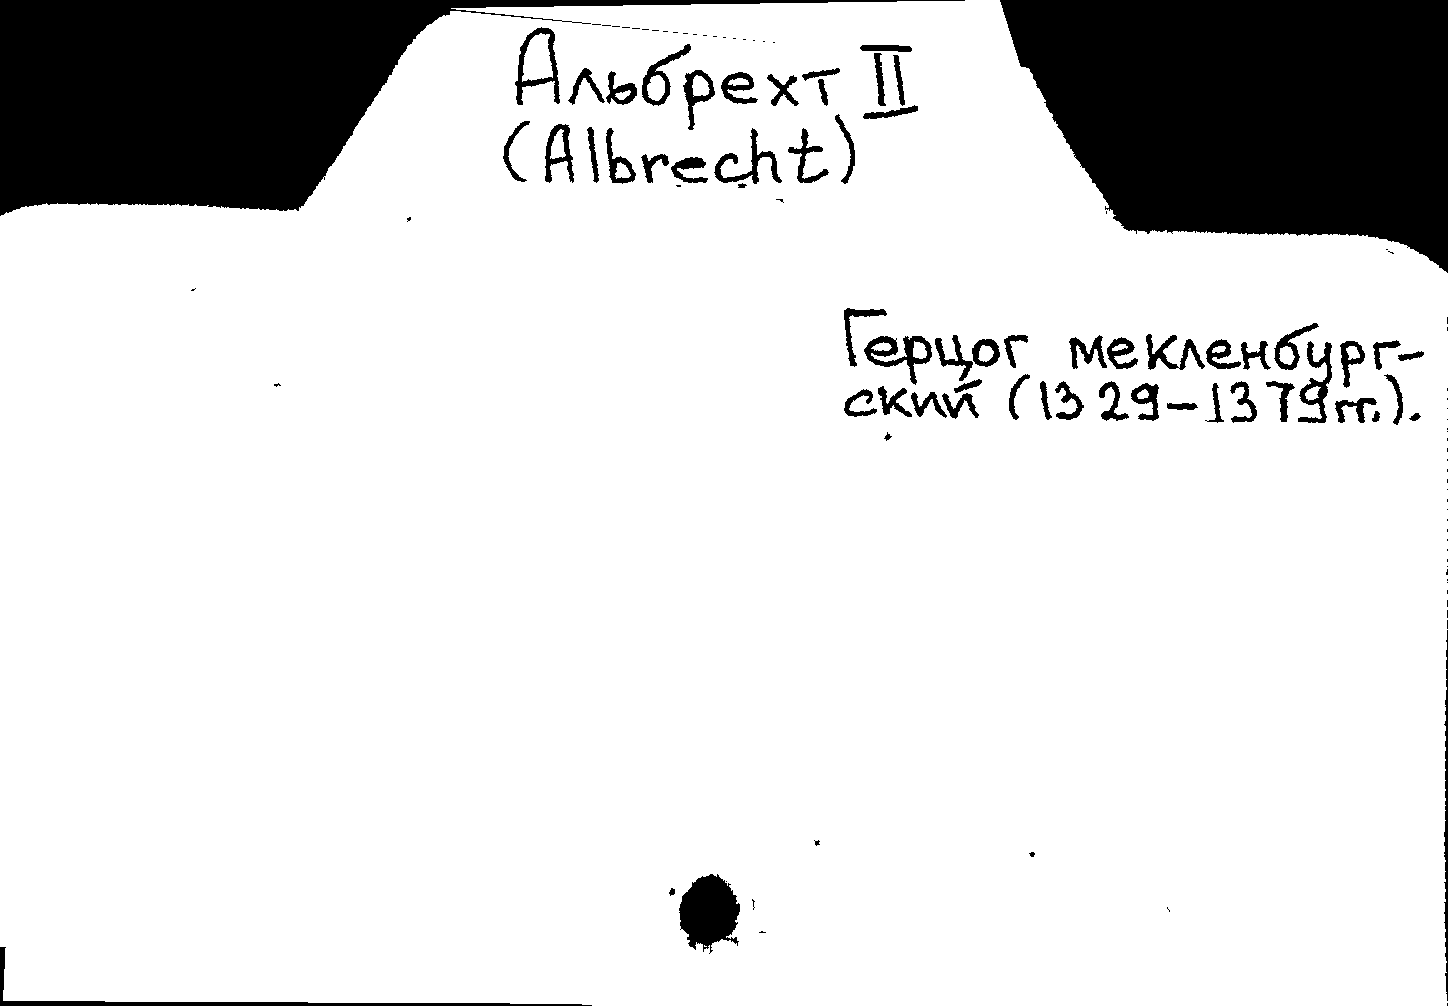 Альбрехт II
(Albrecht)
Герцог мекленбург-
ский (1329-1379гг.).